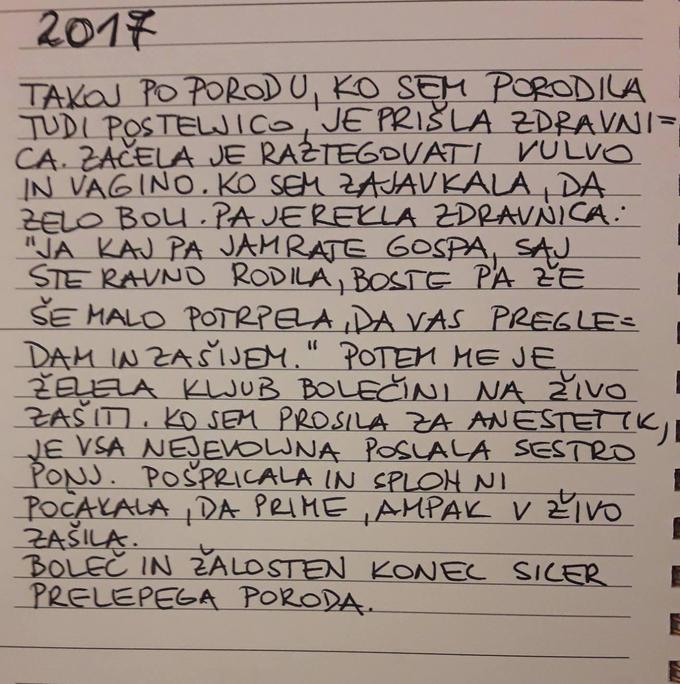 2017
TAKOJ PO PORODU, KO SEM PORODILA
TUDI POSTELJICO, JE PRIŠLA ZDRAVNI=
CA. ZAČELA JE RAZTEGOVATI VULVO
IN VAGINO. KO SEM ZAJAVKALA, DA
ZELO BOLI. PA JE REKLA ZDRAVNICA:
"JA KAJ PA JAMRATE GOSPA, SAJ
STE RAVNO RODILA, BOSTE PA ŽE
ŠE MALO POTRPELA, DA VAS PREGLE=
DAM IN ZAŠIJEM." POTEM ME JE
ŽELELA KLJUB BOLEČINI NA ŽIVO
ZAŠITI. KO SEM PROSILA ZA ANESTETIK,
JE VSA NEJEVOLJNA POSLALA SESTRO
PONJ. POŠPRICALA IN SPLOH NI
POČAKALA, DA PRIME, AMPAK V ŽIVO
ZAŠILA.
BOLEČ IN ŽALOSTEN KONEC SICER
PRELEPEGA PORODA.